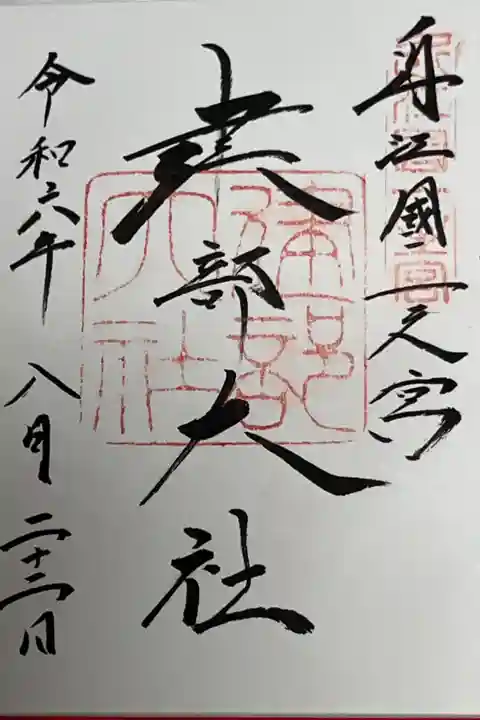 近江國一之宮
建部大社
建部
大社
令和六年 八月 二十三日